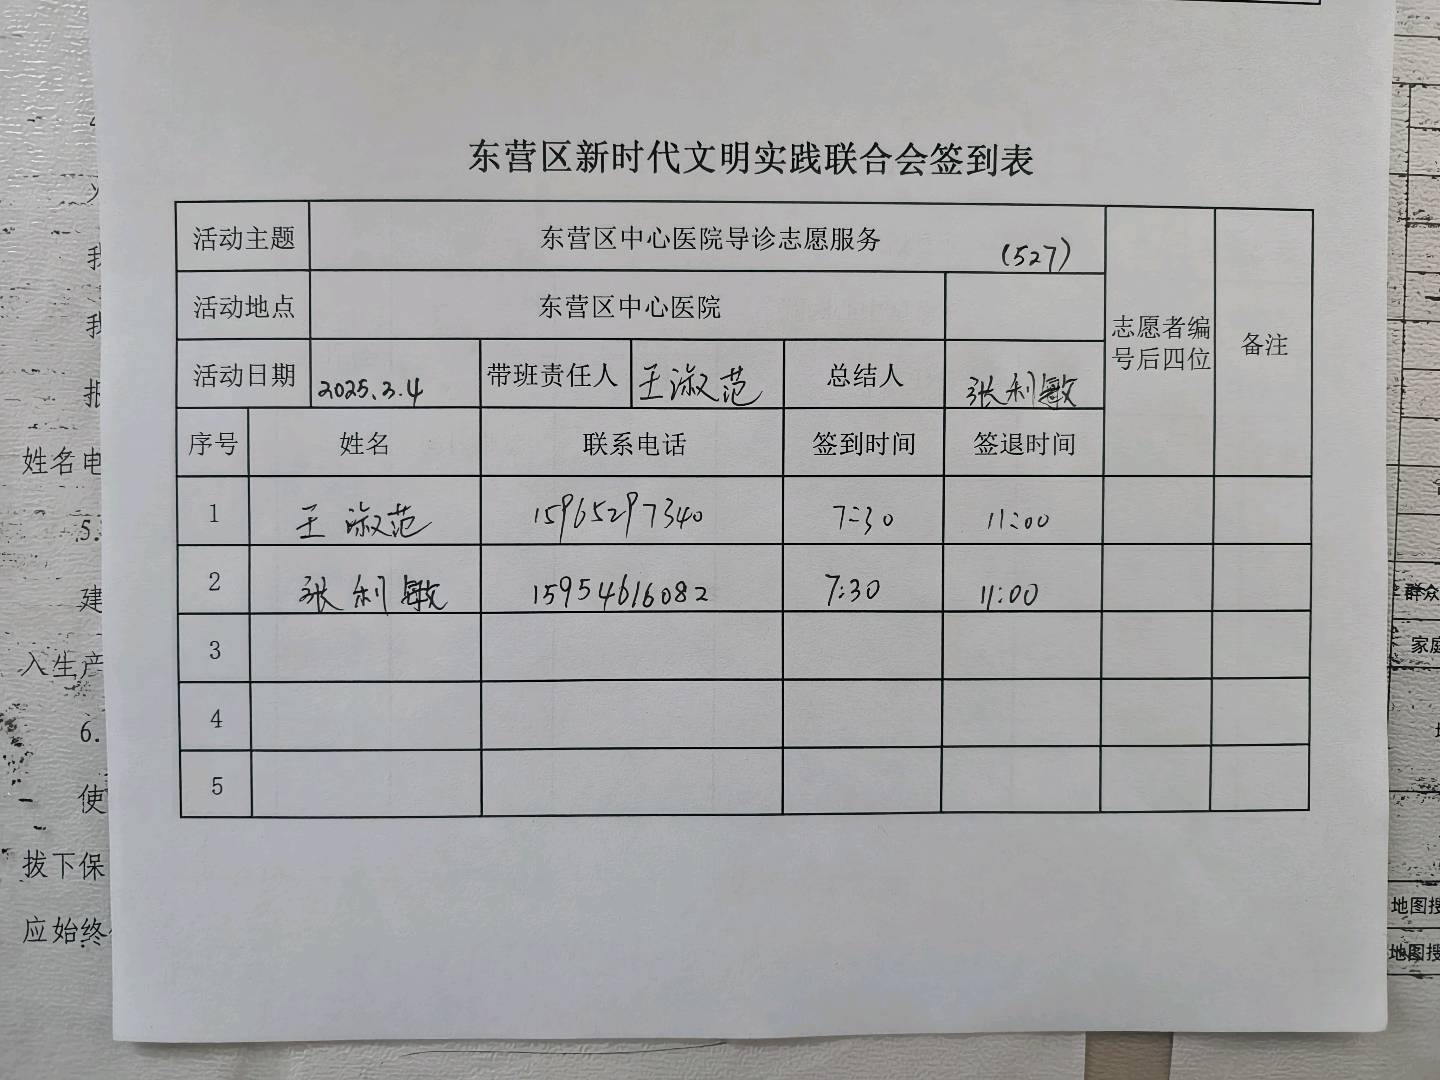 东营区新时代文明实践联合会签到表
活动主题 东营区中心医院导诊志愿服务 (527) 志愿者编号后四位 备注
活动地点 东营区中心医院
活动日期 2025.3.4 带班责任人 王淑范 总结人 张利敏
序号 姓名 联系电话 签到时间 签退时间
1 王淑范 15965297340 7:30 11:00
2 张利敏 15954616082 7:30 11:00
3
4
5
姓名电
5.
建
入生产
6.
使
拔下保
应始终
群众
家庭
地图搜
地图搜